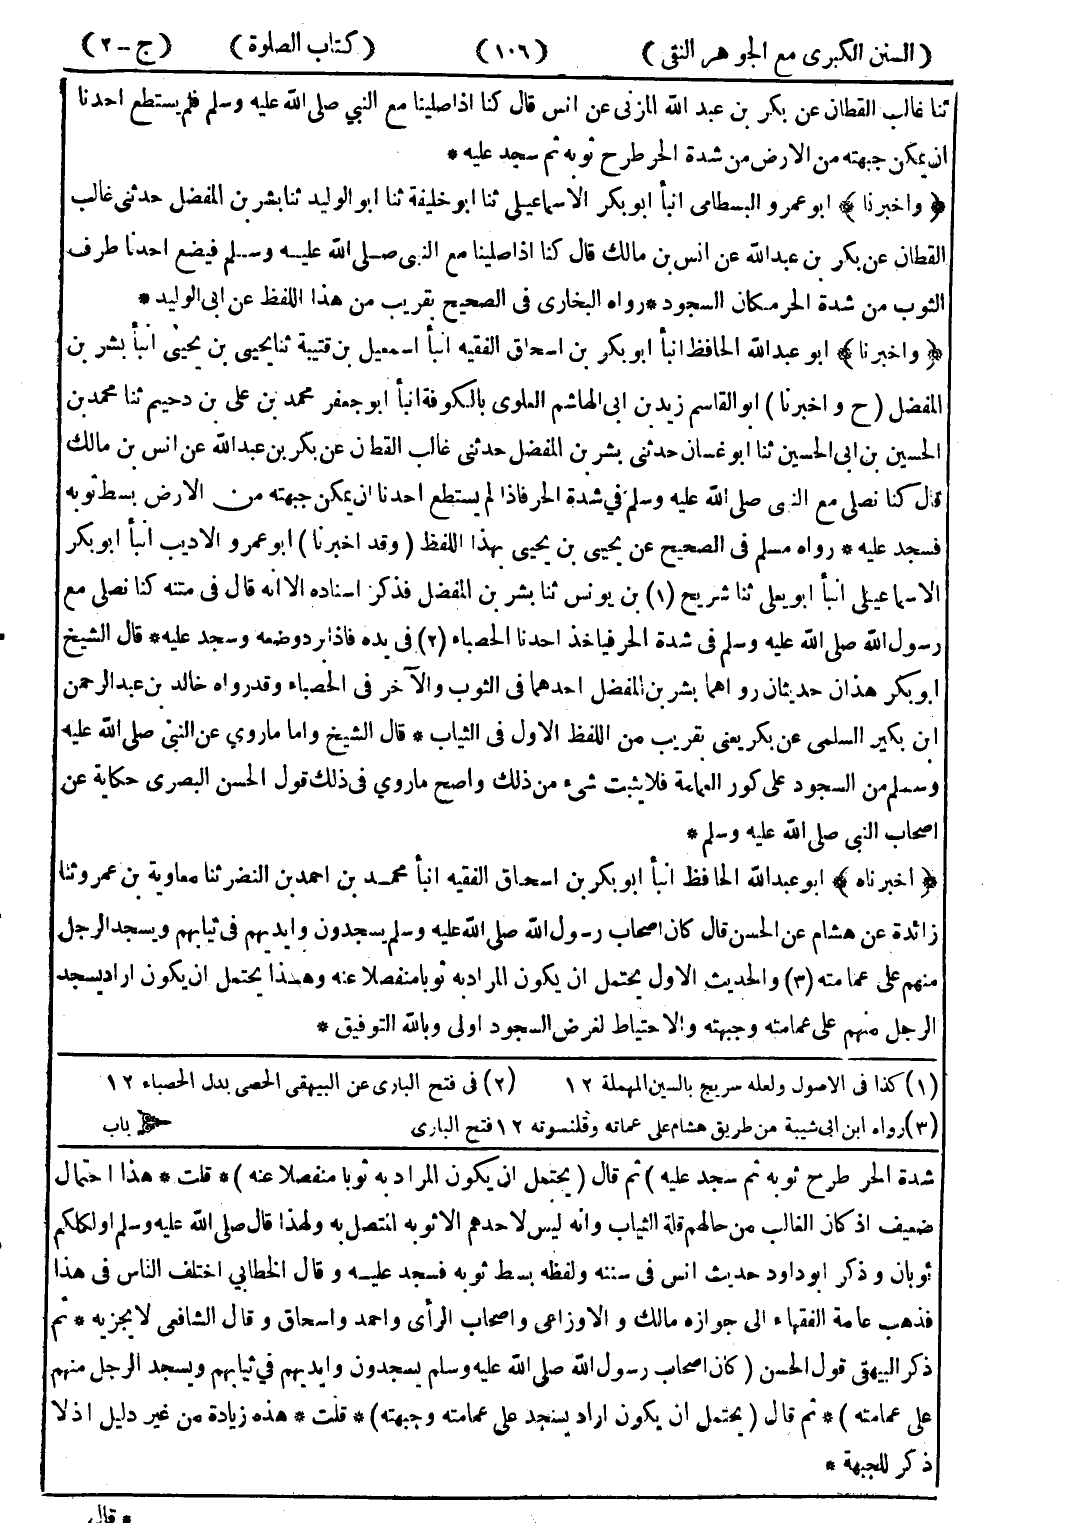 ( السنن الكبرى مع الجوهر النقى ) (١٠٦) ( كتاب الصلوة ) ( ج - ٢ )
ثنا غالب القطان عن بكر بن عبد الله المزنى عن انس قال كنا اذا صلينا مع النبي صلى الله عليه وسلم فلم يستطع احدنا
ان يمكن جبهته من الارض من شدة الحر طرح ثوبه ثم سجد عليه *
﴿ واخبرنا ﴾ ابو عمرو البسطامى انبأ ابو بكر الاسماعيلى ثنا ابو خليفة ثنا ابو الوليد ثنا بشر بن المفضل حدثنى غالب
القطان عن بكر بن عبد الله عن انس بن مالك قال كنا اذا صلينا مع النبى صلى الله عليه وسلم فيضع احدنا طرف
الثوب من شدة الحر مكان السجود * رواه البخارى فى الصحيح بقريب من هذا اللفظ عن ابى الوليد *
﴿ واخبرنا ﴾ ابو عبد الله الحافظ انبأ ابو بكر بن اسحاق الفقيه انبأ اسمعيل بن قتيبة ثنا يحيى بن يحيى انبأ بشر بن
المفضل ( ح و اخبرنا ) ابو القاسم زيد بن ابى الهاشم العلوى بالكوفة انبأ ابو جعفر محمد بن على بن دحيم ثنا محمد بن
الحسين بن ابى الحسين ثنا ابو غسان حدثنى بشر بن المفضل حدثنى غالب القطان عن بكر بن عبد الله عن انس بن مالك
قال كنا نصلى مع النبى صلى الله عليه وسلم في شدة الحر فاذا لم يستطع احدنا ان يمكن جبهته من الارض بسط ثوبه
فسجد عليه * رواه مسلم فى الصحيح عن يحيى بن يحيى بهذا اللفظ ( وقد اخبرنا ) ابو عمرو الاديب انبأ ابو بكر
الاسماعيلى انبأ ابو يعلى ثنا شريح (١) بن يونس ثنا بشر بن المفضل فذكر اسناده الا انه قال فى متنه كنا نصلى مع
رسول الله صلى الله عليه وسلم فى شدة الحر فياخذ احدنا الحصباء (٢) فى يده فاذا برد وضعه وسجد عليه * قال الشيخ
ابو بكر هذان حديثان رواهما بشر بن المفضل احدهما فى الثوب والآخر فى الحصباء وقد رواه خالد بن عبد الرحمن
ابن بكير السلمى عن بكر يعنى بقريب من اللفظ الاول فى الثياب * قال الشيخ واما ماروي عن النبي صلى الله عليه
وسلم من السجود على كور العمامة فلا يثبت شىء من ذلك واصح ماروي فى ذلك قول الحسن البصرى حكاية عن
اصحاب النبى صلى الله عليه وسلم *
﴿ اخبرناه ﴾ ابو عبد الله الحافظ انبأ ابو بكر بن اسحاق الفقيه انبأ محمد بن احمد بن النضر ثنا معاوية بن عمرو ثنا
زائدة عن هشام عن الحسن قال كان اصحاب رسول الله صلى الله عليه وسلم يسجدون وايديهم فى ثيابهم ويسجد الرجل
منهم على عمامته (٣) والحديث الاول يحتمل ان يكون المراد به ثوبا منفصلا عنه وهذا يحتمل ان يكون اراد يسجد
الرجل منهم على عمامته وجبهته والاحتياط لفرض السجود اولى وبالله التوفيق *
(١) كذا فى الاصول ولعله سريج بالسين المهملة ١٢ (٢) فى فتح البارى عن البيهقى الحصى بدل الحصباء ١٢
(٣) رواه ابن ابى شيبة من طريق هشام على عماته وقلنسوته ١٢ فتح البارى باب
شدة الحر طرح ثوبه ثم سجد عليه ) ثم قال ( يحتمل ان يكون المراد به ثوبا منفصلا عنه ) * قلت * هذا احتمال
ضعيف اذ كان الغالب من حالهم قلة الثياب وانه ليس لاحدهم الا ثوبه المتصل به ولهذا قال صلى الله عليه وسلم او لكلكم
ثوبان و ذكر ابو داود حديث انس فى سننه ولفظه بسط ثوبه فسجد عليه و قال الخطابي اختلف الناس فى هذا
فذهب عامة الفقهاء الى جوازه مالك و الاوزاعى واصحاب الرأى واحمد واسحاق و قال الشافعى لا يجزيه * ثم
ذكر البيهقى قول الحسن ( كان اصحاب رسول الله صلى الله عليه وسلم يسجدون وايديهم في ثيابهم ويسجد الرجل منهم
على عمامته ) * ثم قال ( يحتمل ان يكون اراد يسجد على عمامته وجبهته ) * قلت * هذه زيادة من غير دليل اذ لا
ذكر للجبهة *
* قال